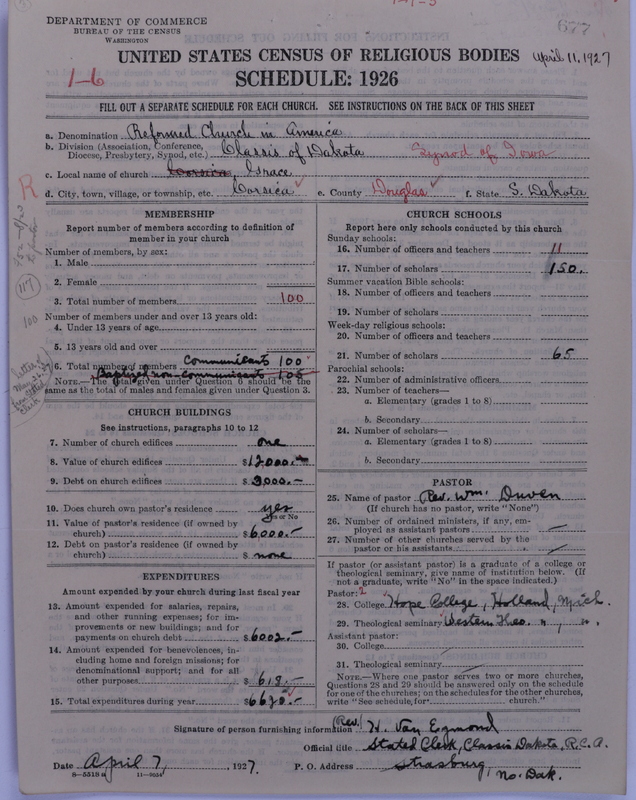 DEPARTMENT OF COMMERCE
BUREAU OF THE CENSUS
WASHINGTON
677
UNITED STATES CENSUS OF RELIGIOUS BODIES April 11, 1927
1-6
SCHEDULE: 1926
FILL OUT A SEPARATE SCHEDULE FOR EACH CHURCH. SEE INSTRUCTIONS ON THE BACK OF THIS SHEET
a. Denomination Reformed Church in America
b. Division (Association, Conference, Diocese, Presbytery, Synod, etc.) Classis of Dakota Synod of Iowa
c. Local name of church Corsica, Grace
d. City, town, village, or township, etc. Corsica e. County Douglas f. State S. Dakota
R
MEMBERSHIP
Report number of members according to definition of
member in your church
Number of members, by sex:
1. Male
2. Female
3. Total number of members 100
Number of members under and over 13 years old:
4. Under 13 years of age
5. 13 years old and over
6. Total number of members Communicants 100
Baptized non-communicants 105
NOTE.—The total given under Question 6 should be the
same as the total of males and females given under Question 3.
117
100
CHURCH BUILDINGS
See instructions, paragraphs 10 to 12
7. Number of church edifices one
8. Value of church edifices $12000.-
9. Debt on church edifices $3,000.-
10. Does church own pastor's residence yes
Yes or No
11. Value of pastor's residence (if owned by
church) $6000.-
12. Debt on pastor's residence (if owned by
church) $ none
EXPENDITURES
Amount expended by your church during last fiscal year
13. Amount expended for salaries, repairs,
and other running expenses; for im-
provements or new buildings; and for
payments on church debt $6002.-
14. Amount expended for benevolences, in-
cluding home and foreign missions; for
denominational support; and for all
other purposes $ 618.-
15. Total expenditures during year $6620.-
CHURCH SCHOOLS
Report here only schools conducted by this church
Sunday schools:
16. Number of officers and teachers 11
17. Number of scholars 150.
Summer vacation Bible schools:
18. Number of officers and teachers
19. Number of scholars
Week-day religious schools:
20. Number of officers and teachers
21. Number of scholars 65
Parochial schools:
22. Number of administrative officers
23. Number of teachers—
a. Elementary (grades 1 to 8)
b. Secondary
24. Number of scholars—
a. Elementary (grades 1 to 8)
b. Secondary
PASTOR
25. Name of pastor Rev. Wm. Duven
(If church has no pastor, write "None")
26. Number of ordained ministers, if any, em-
ployed as assistant pastors
27. Number of other churches served by the
pastor or his assistants
If pastor (or assistant pastor) is a graduate of a college or
theological seminary, give name of institution below. (If
not a graduate, write "No" in the space indicated.)
Pastor: 2
28. College Hope College, Holland, Mich.
29. Theological seminary Western Theo. " , " .
Assistant pastor:
30. College
31. Theological seminary
NOTE.—Where one pastor serves two or more churches,
Questions 28 and 29 should be answered only on the schedule
for one of the churches; on the schedules for the other churches,
write "See schedule, for church."
Signature of person furnishing information (Rev.) H. Van Egmond
Official title Stated Clerk, Classis Dakota, R.C.A.
Date April 7, 1927. P. O. Address Strasburg, No. Dak.
8-5518 a 11-9034